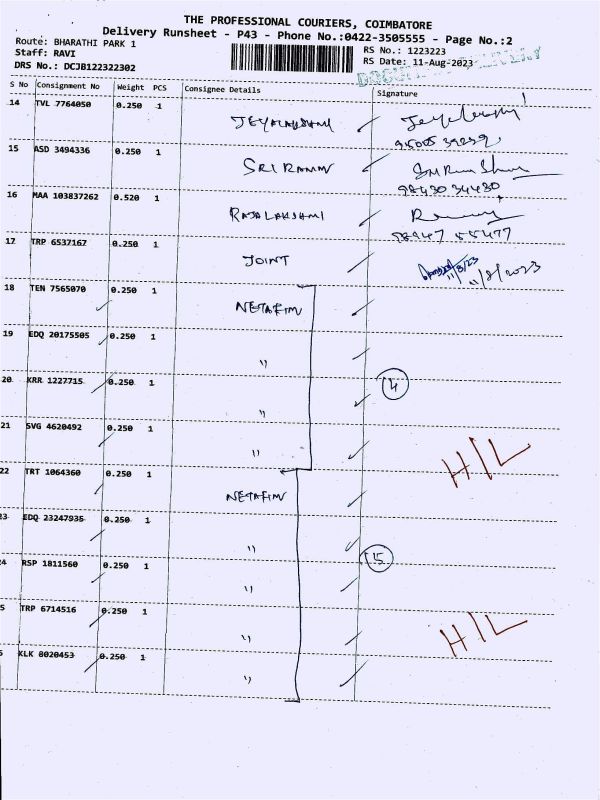 THE PROFESSIONAL COURIERS, COIMBATORE
Delivery Runsheet - P43 - Phone No.:0422-3505555 - Page No.:2
Route: BHARATHI PARK 1
RS No.: 1223223
Staff: RAVI
RS Date: 11-Aug-2023
DRS No.: DCJB122322302
S No Consignment No Weight PCS Consignee Details Signature
14 TVL 7764050 0.250 1 JEYALAKSHMI
15 ASD 3494336 0.250 1 SRI RAMM
98430 34430
16 MAA 103837262 0.520 1 RAJALAKSHMI
98947 55477
17 TRP 6537167 0.250 1 JOINT
11/8/23
11/8/2023
18 TEN 7565070 0.250 1 NETAFIM
19 EDQ 20175505 0.250 1 "
20 KRR 1227715 0.250 1 "
4
21 SVG 4620492 0.250 1 "
H/L
22 TRT 1064360 0.250 1 NETAFIM
3 EDQ 23247935 0.250 1 "
4 RSP 1811560 0.250 1 "
5
5 TRP 6714516 0.250 1 "
H/L
KLK 8020453 0.250 1 "